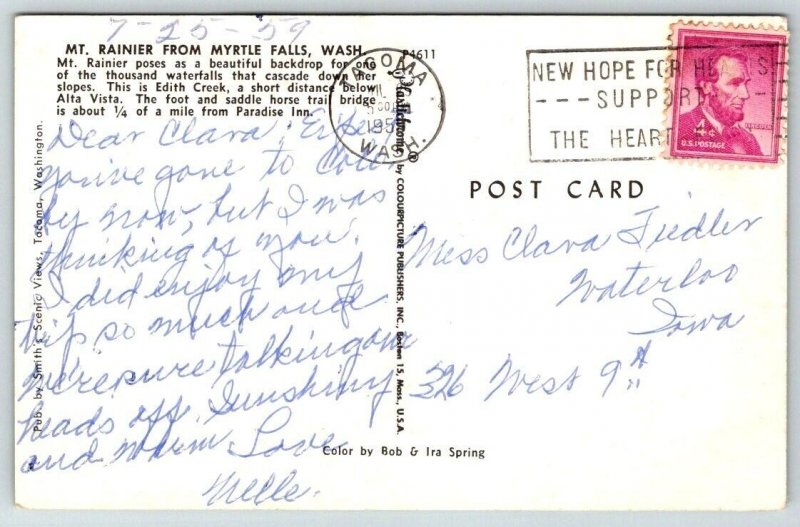 7-25-59
MT. RAINIER FROM MYRTLE FALLS, WASH.
Mt. Rainier poses as a beautiful backdrop for one
of the thousand waterfalls that cascade down her
slopes. This is Edith Creek, a short distance below
Alta Vista. The foot and saddle horse trail bridge
is about ¼ of a mile from Paradise Inn.
P4611
TACOMA
195
WASH.
NEW HOPE FOR HE S
--- SUPPOR
THE HEART
4¢
LINCOLN
U.S. POSTAGE
Dear Clara: Expect
you've gone to Colo
by now, but I was
thinking of you.
I did enjoy my
trip so much and
we're sure talking our
heads off. Sunshiny
and warm. Love
Nelle.
Pub. by Smith's Scenic Views, Tacoma, Washington.
Plastichrome® by COLOURPICTURE PUBLISHERS, INC., Boston 15, Mass., U.S.A.
POST CARD
Miss Clara Fiedler
Waterloo
Iowa
326 West 9th
Color by Bob & Ira Spring